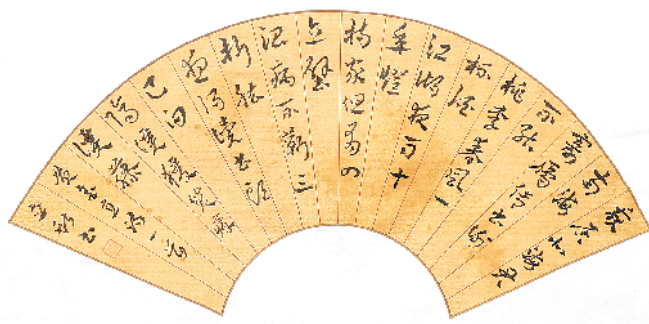 我居北海君
南海
寄雁傳書謝
不能
桃李春風一
杯酒
江湖夜雨十
年燈
持家但有四
立壁
治病不蘄三
折肱
想得讀書頭
已白
隔溪猿哭瘴
溪藤
黃庭堅詩一首